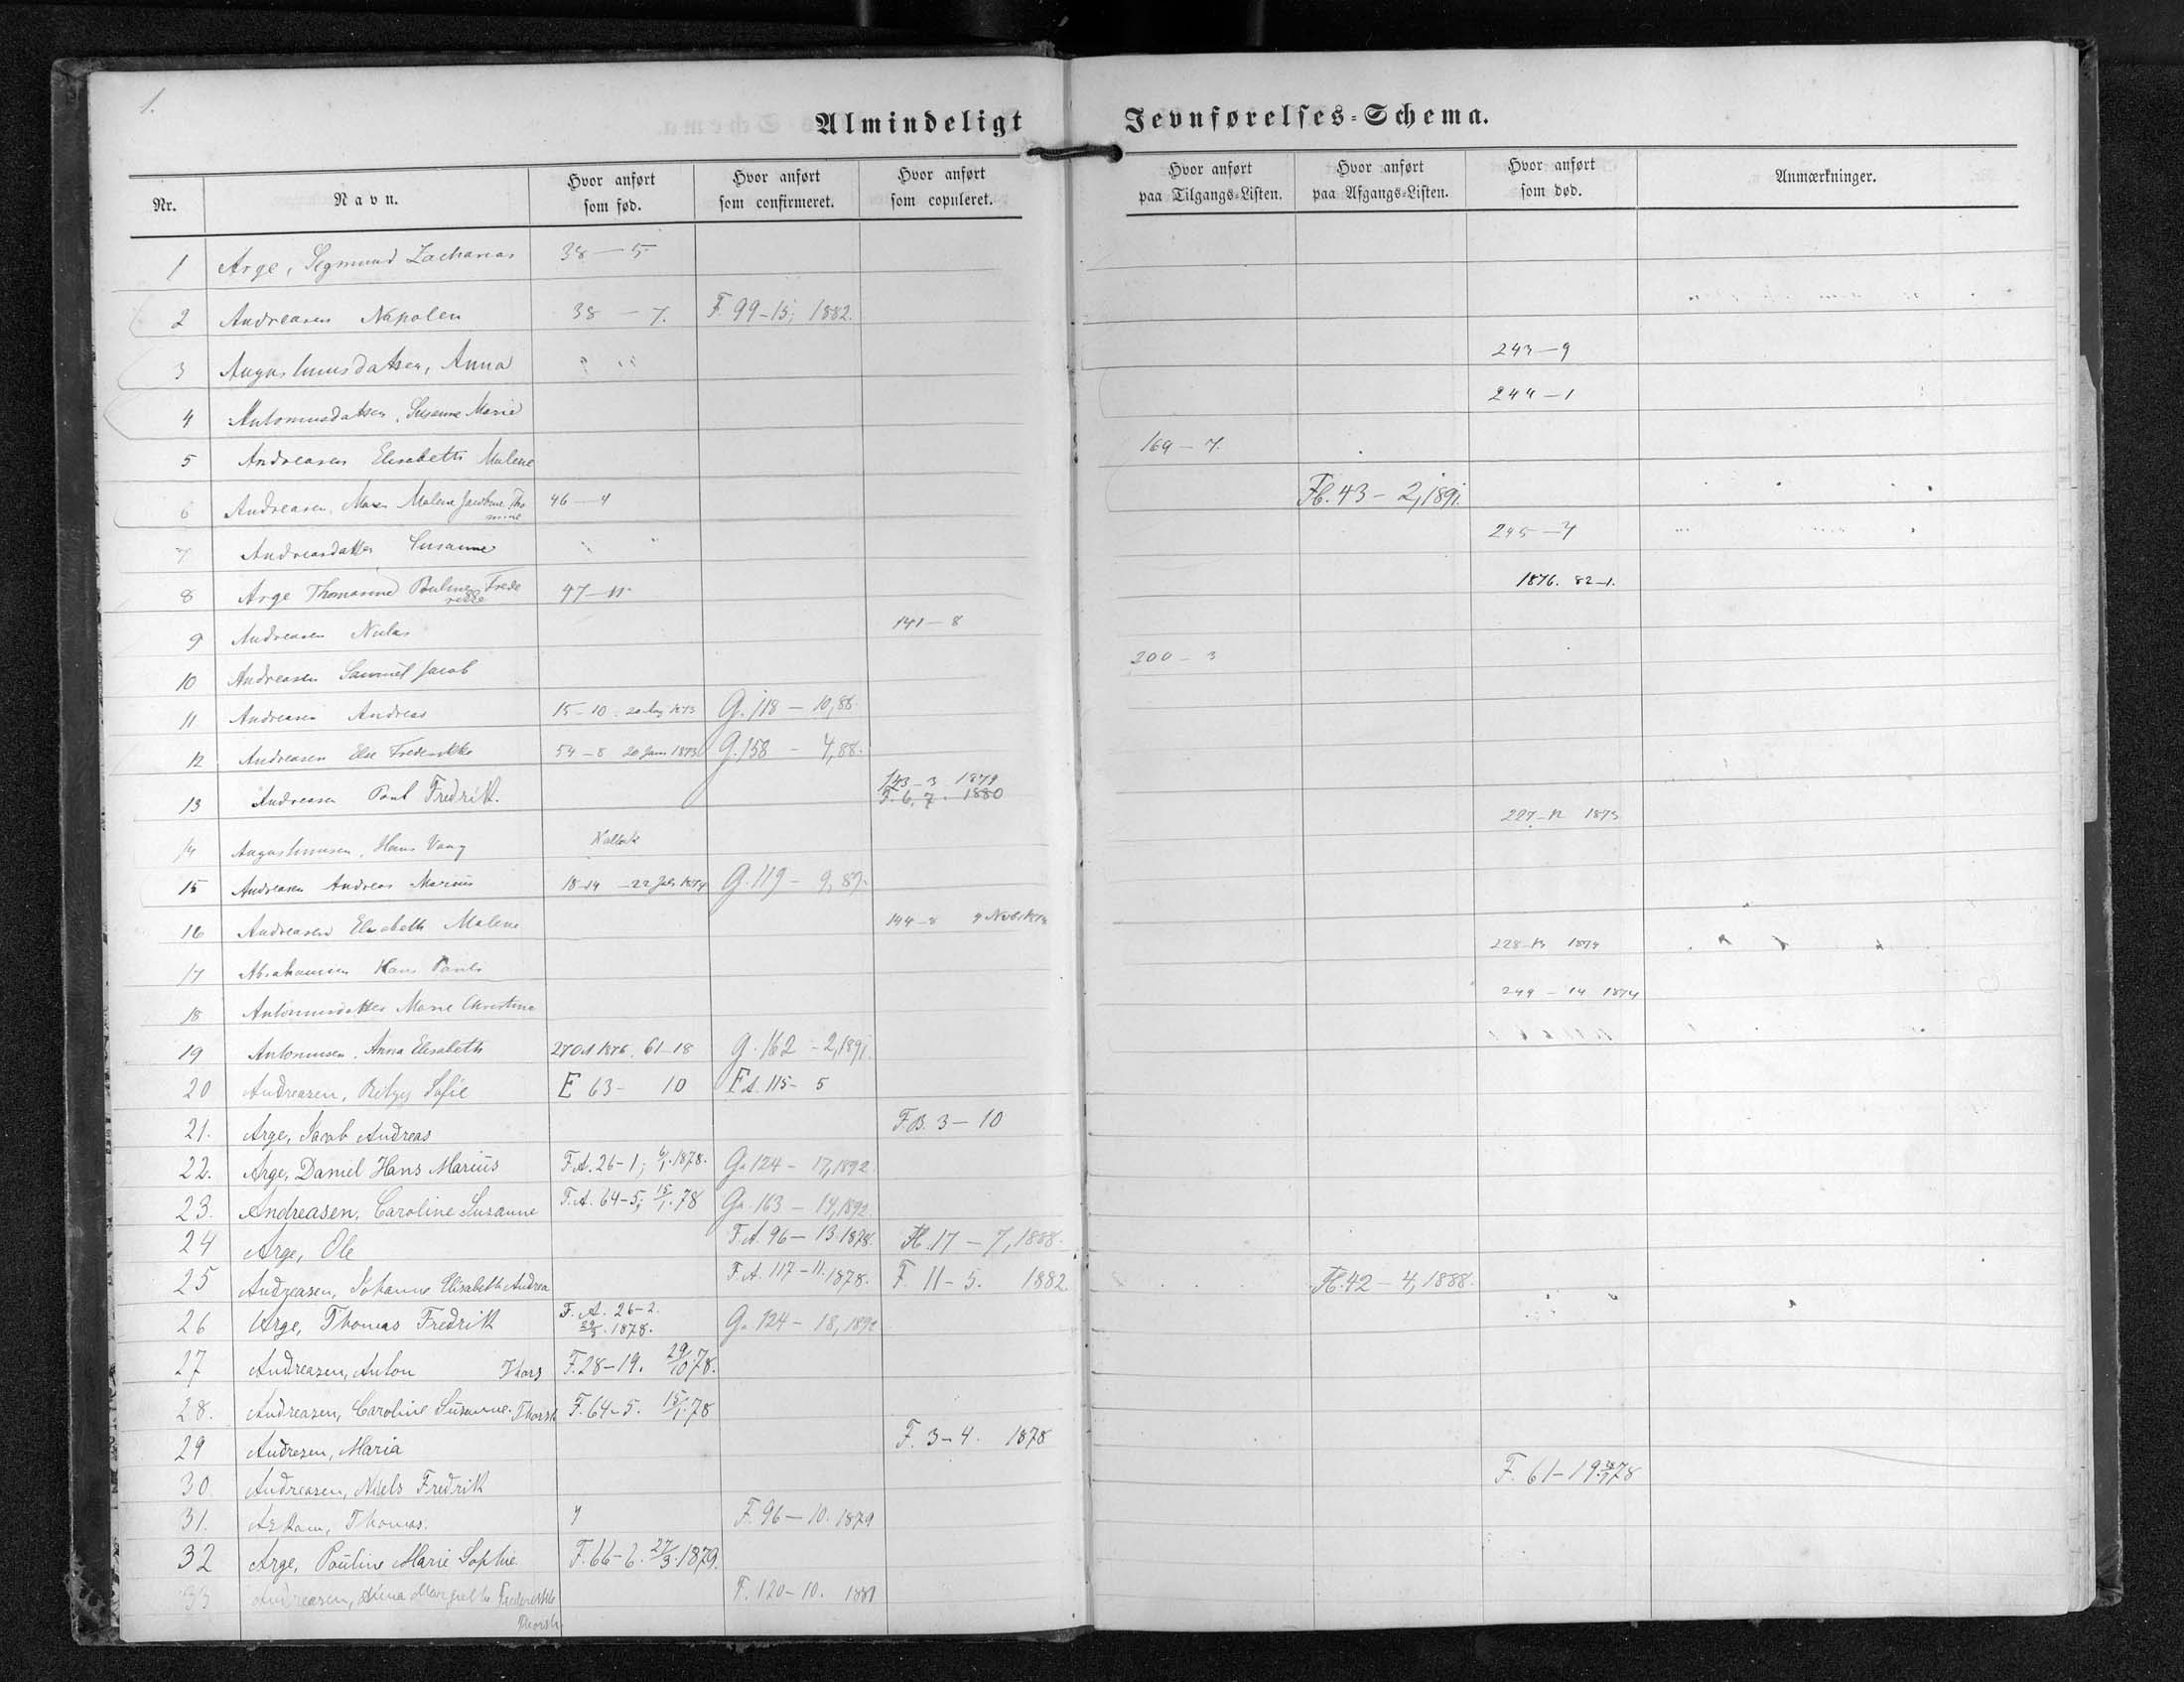 1.
Almindeligt Jevnførelses-Schema.
Nr. Navn. Hvor anført som fød. Hvor anført som confirmeret. Hvor anført som copuleret. Hvor anført paa Tilgangs-Listen. Hvor anført paa Afgangs-Listen. Hvor anført som død. Anmærkninger.
1 Arge, Segmund Zacharias 38 — 5
2 Andreasen Napolen 38 — 7. F. 99-15; 1882.
3 Augustinusdatter, Anna 243 — 9
4 Antoniusdatter, Susanne Marie 244 — 1
5 Andreasen Elisabeth Malene 169 — 7.
6 Andreasen, Maren Malene Jacobine Tho
mine 46 — 4 Fb. 43 — 2, 1891.
7 Andreasdatter Susanne 245 — 7
8 Arge Thomasine Pouline Frede
rikke 47 — 11 1876. 82-1.
9 Andreasen Niclas 141 — 8
10 Andreasen Samuel Jacob 200 — 3
11 Andreasen Andreas 15 — 10 20 Aug 1873 G. 118 — 10, 88.
12 Andreasen Else Frederikke 54 — 8 20 Jan 1873 G. 158 — 4, 88.
13 Andreasen Poul Fredrik. 143 — 3 1879
F. 6. 7. 1880
14 Augustinussen, Hans Vang 227 — 12 1873
15 Andreasen Andreas Marius 18-14 — 22 July 1874 G. 119 — 9, 89.
16 Andreasen Elisabeth Malene 144 — 8
17 Abrahamsen Hans Pauli 228-13 1874
18 Antoniusdatter Marie Christine 249 — 14 1874
19 Antoniusen, Anna Elisabeth 1876. 61-18 G. 162 — 2, 1891.
20 Andreasen, Sofie E 63 — 10 F.A. 115 — 5
21. Arge, Jacob Andreas F.B. 3 — 10
22. Arge, Daniel Hans Marius F.A. 26-1; 6/1. 1878. Ga 124 — 17, 1892.
23. Andreasen, Caroline Susanne F.A. 64-5; 15/1. 78 Ga 163 — 14, 1892.
24 Arge, Ole F.A. 96 — 13. 1878. Fb. 17 — 7, 1888.
25 Andreasen, Johanne Elisabeth Andrea F.A. 117 — 11. 1878. F. 11 — 5. 1882 Fb. 42 — 4, 1888.
26 Arge, Thomas Fredrik F.A. 26-2.
1878. Ga 124 — 18, 1892
27 Andreasen, Anton Thors F. 28-19. 29/10. 78.
28. Andreasen, Caroline Susanne. Thorsh F. 64-5. 15/1. 78
29 Andresen, Maria F. 3-4. 1878
30. Andreasen, Niels Fredrik F. 61-19. 78
31. Thomas. F. 96 — 10. 1879
32 Arge, Pouline Marie Sophie. F. 66-6. 27/3. 1879.
33 Andreasen, Anna Margrethe Frederikke
Thorsh. F. 120 — 10. 1881